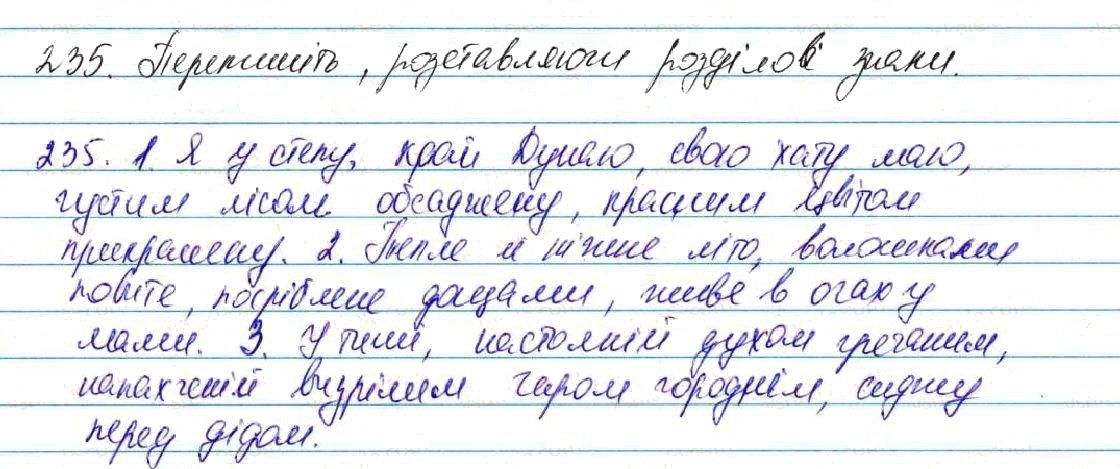 235. Перепишіть, розставляючи розділові знаки.
235. 1. Я у степу, край Дунаю, свою хату маю,
густим лісом обсаджену, красним цвітом
прикрашену. 2. Тепле й ніжне літо, волошками
повите, посріблене дощами, живе в очах у
мами. 3. У тиші, настояній духом гречаним,
напахченій визрілим чаром городнім, сиджу
перед дідом.